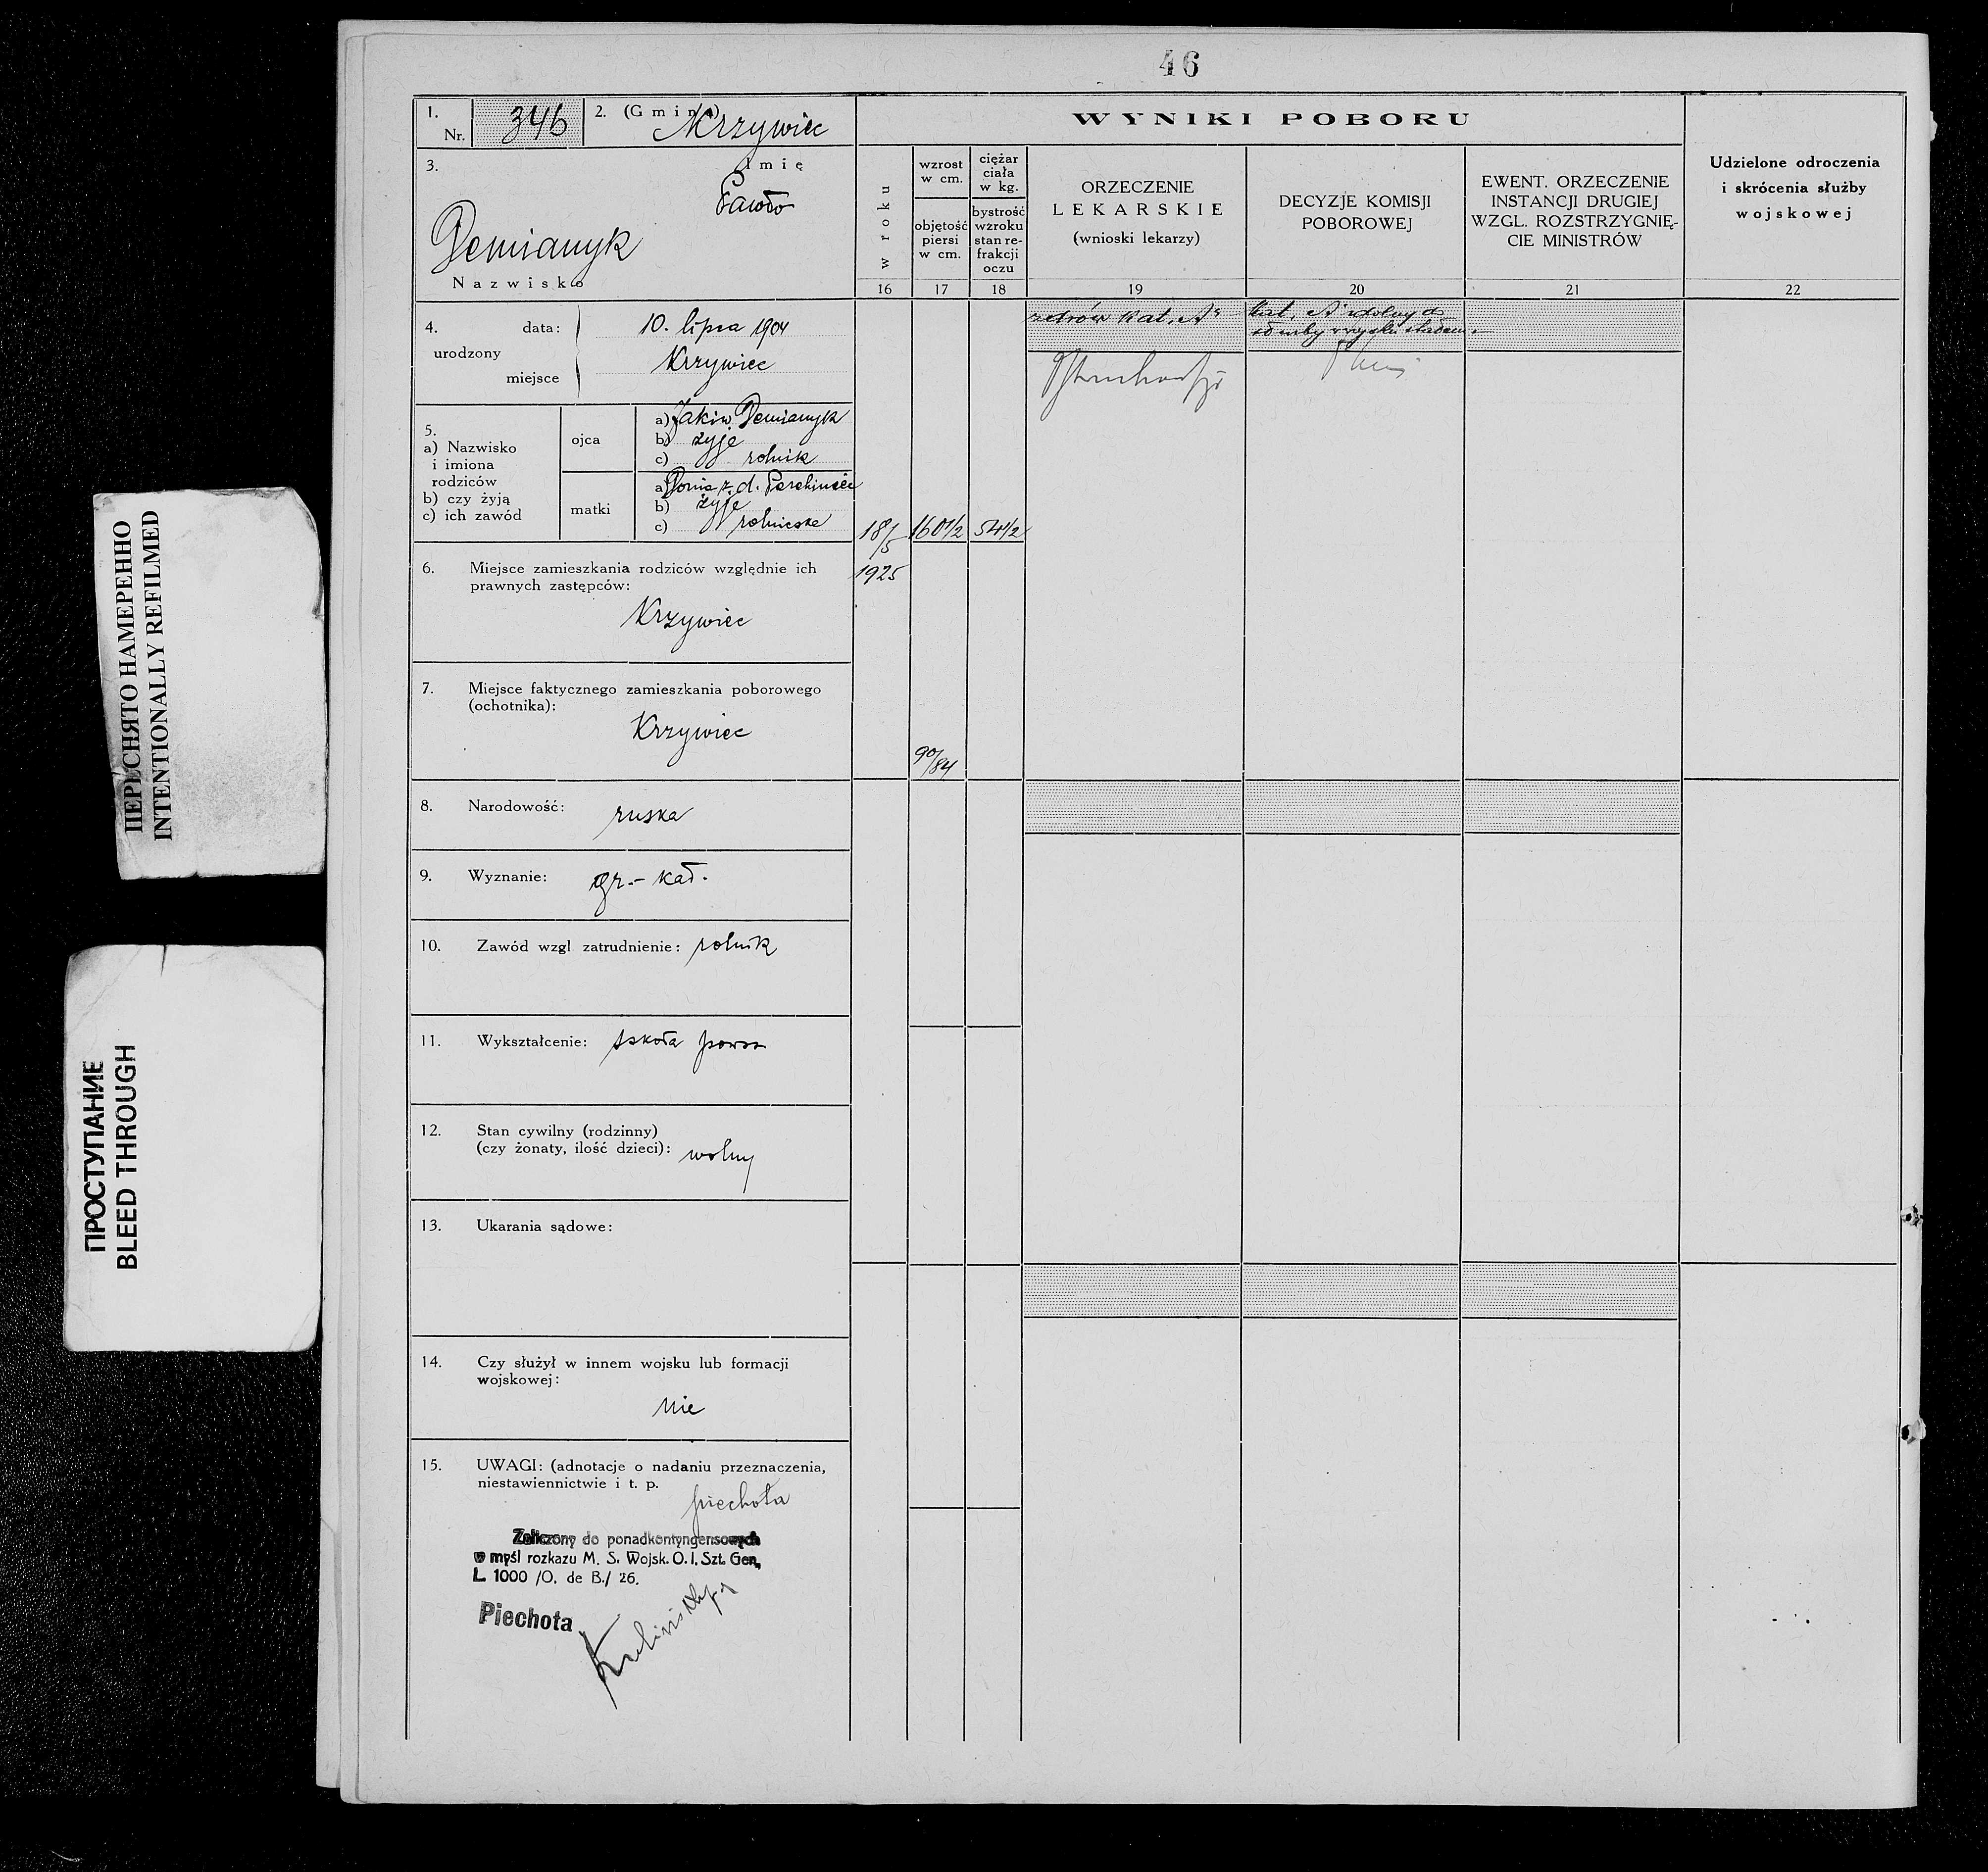 46
1.
Nr. 346
2. (Gmina)
Krzywiec
3.
Imię
Pawło
Demianyk
Nazwisko
4.
urodzony
data: 10. lipca 1904
miejsce Krzywiec
5.
a) Nazwisko
i imiona
rodziców
b) czy żyją
c) ich zawód
ojca
a) Jakiw Demianyk
b) żyje
c) rolnik
matki
a) z d.
b) żyje
c) rolniczka
6. Miejsce zamieszkania rodziców względnie ich
prawnych zastępców:
Krzywiec
7. Miejsce faktycznego zamieszkania poborowego
(ochotnika):
Krzywiec
8. Narodowość: ruska
9. Wyznanie: gr.-kat.
10. Zawód wzgl zatrudnienie: rolnik
11. Wykształcenie: szkoła
12. Stan cywilny (rodzinny)
(czy żonaty, ilość dzieci): wolny
13. Ukarania sądowe:
14. Czy służył w innem wojsku lub formacji
wojskowej:
nie
15. UWAGI: (adnotacje o nadaniu przeznaczenia,
niestawiennictwie i t. p.
piechota
Zaliczony do ponadkontyngensowych
w myśl rozkazu M. S. Wojsk. O. I. Szt. Gen.
L. 1000 /O. de B./ 26.
Piechota
WYNIKI POBORU
w roku
16
wzrost
w cm.
objętość
piersi
w cm.
17
ciężar
ciała
w kg.
bystrość
wzroku
stan re-
frakcji
oczu
18
ORZECZENIE
LEKARSKIE
(wnioski lekarzy)
19
DECYZJE KOMISJI
POBOROWEJ
20
EWENT. ORZECZENIE
INSTANCJI DRUGIEJ
WZGL. ROZSTRZYGNIĘ-
CIE MINISTRÓW
21
Udzielone odroczenia
i skrócenia służby
wojskowej
22
18/5
1925
160 1/2
54 1/2
90/84
zdrów kat. A
kat. A zdolny do
ПЕРЕСНЯТО НАМЕРЕННО
INTENTIONALLY REFILMED
ПРОСТУПАНИЕ
BLEED THROUGH